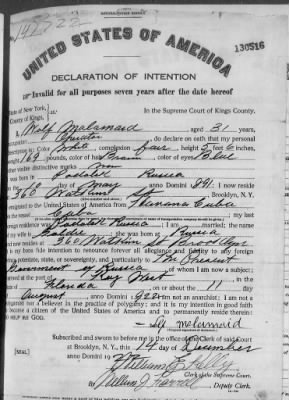 142522
UNITED STATES OF AMERICA
130516
DECLARATION OF INTENTION
Invalid for all purposes seven years after the date hereof
State of New York,
County of Kings, ss:
In the Supreme Court of Kings County.
I, Malamaid aged 31 years,
occupation do declare on oath that my personal
description is: Color White complexion Fair height 5 feet 6 inches,
weight 169 pounds, color of hair Brown color of eyes Blue
other visible distinctive marks
Russia
day of May anno Domini 1891; I now reside
at 360 Watkins St
emigrated to the United States of America from Havana Cuba
Cuba my last
foreign residence was Russia; I am married; the name
she was born at Russia
resides at 360 Watkins St Brooklyn
It is my bona fide intention to renounce forever all allegiance and fidelity to any foreign
prince, potentate, state, or sovereignty, and particularly to The Present
Government of Russia of whom I am now a subject;
I arrived at the port of Key West
Florida on or about the 11 day
August anno Domini 1920; I am not an anarchist; I am not a
polygamist nor a believer in the practice of polygamy; and it is my intention in good faith
to become a citizen of the United States of America and to permanently reside therein:
SO HELP ME GOD.
malamaid
Subscribed and sworn to before me in the office of the Clerk of said Court
at Brooklyn, N. Y., this 14 day of December
anno Domini 19
[SEAL]
Clerk of the Supreme Court.
By William J. Farrell, Deputy Clerk.